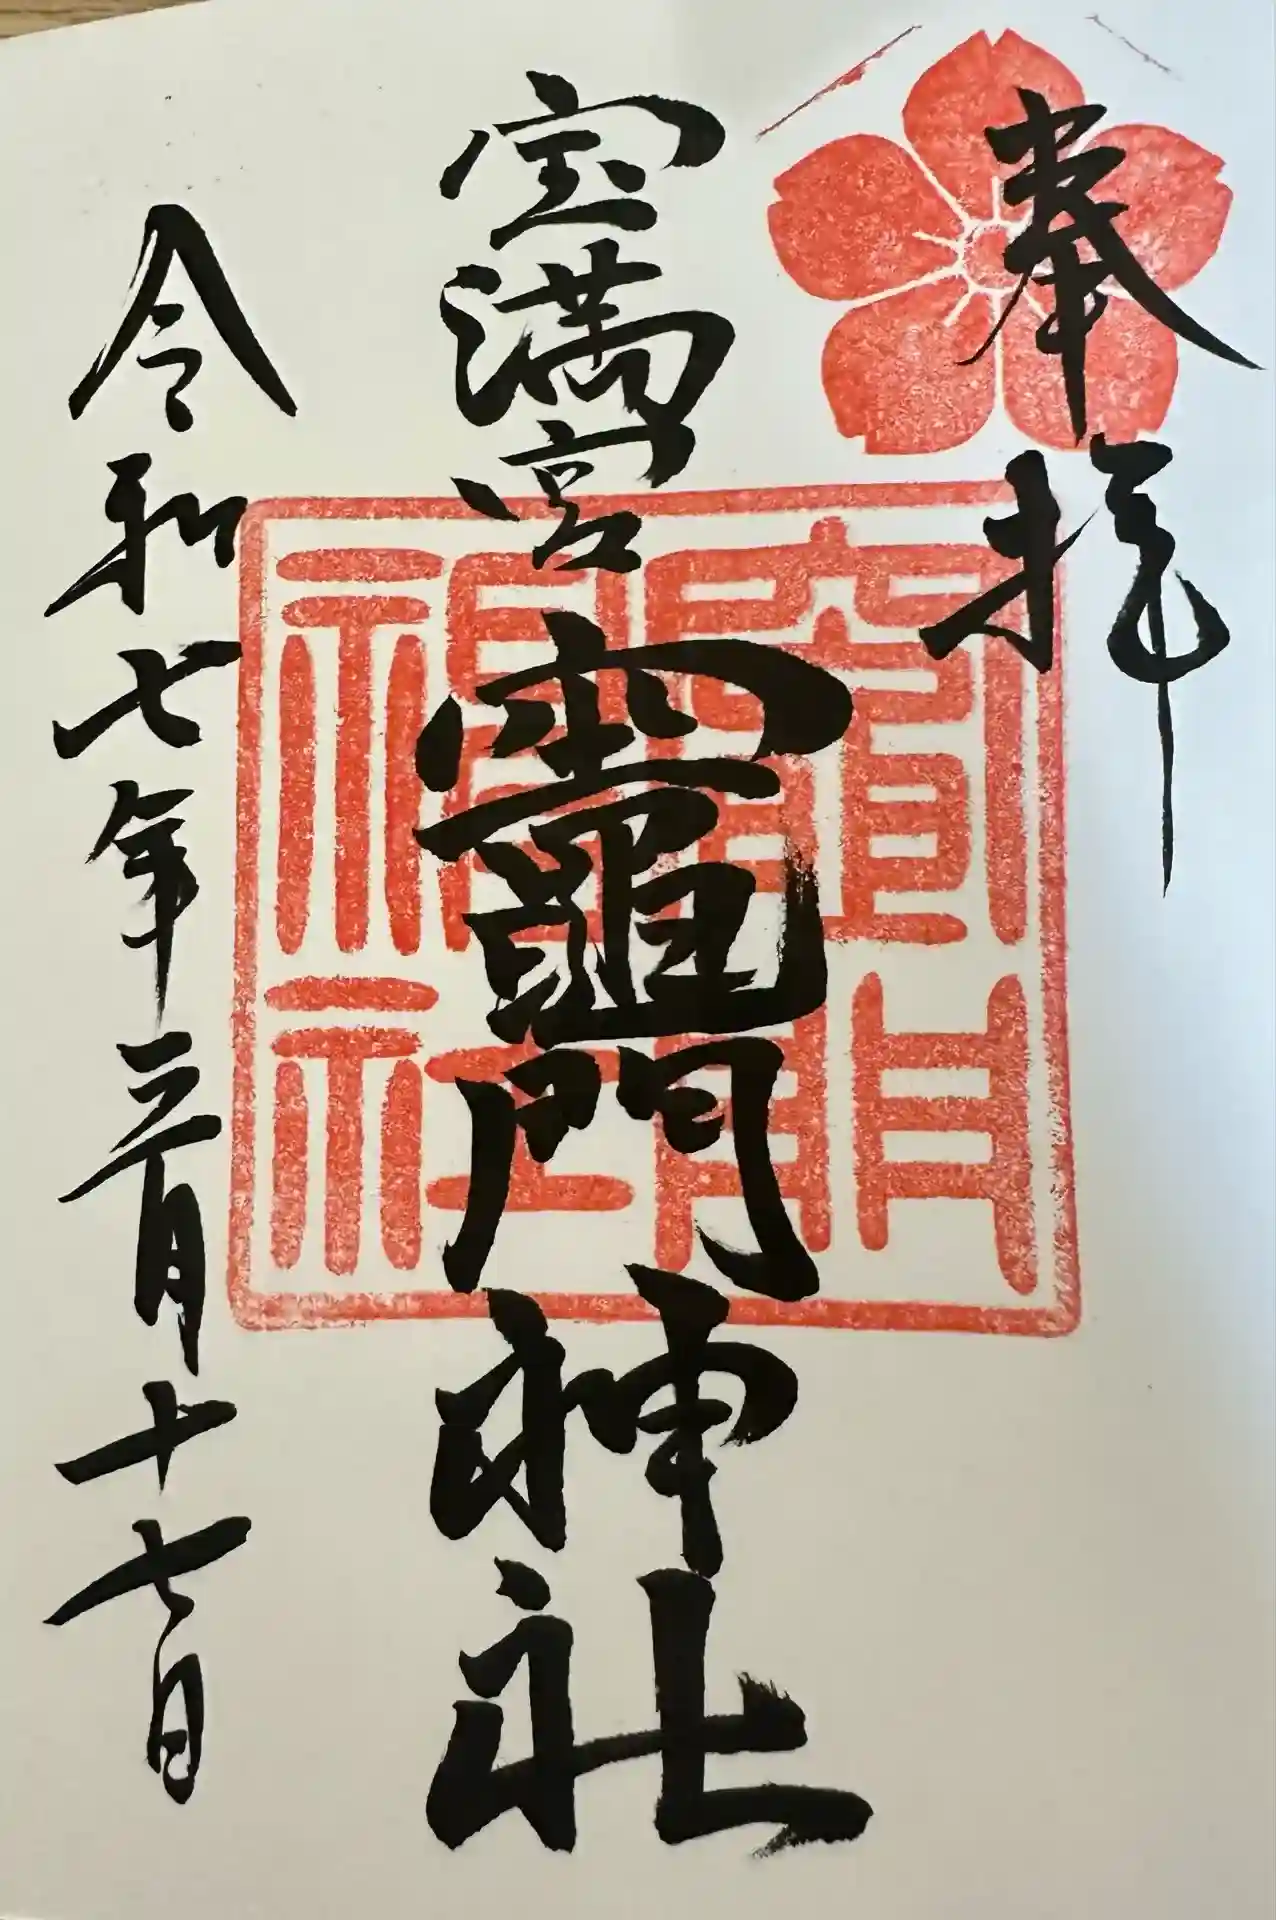 奉拝
宝満宮 竈門神社
令和七年三月十七日